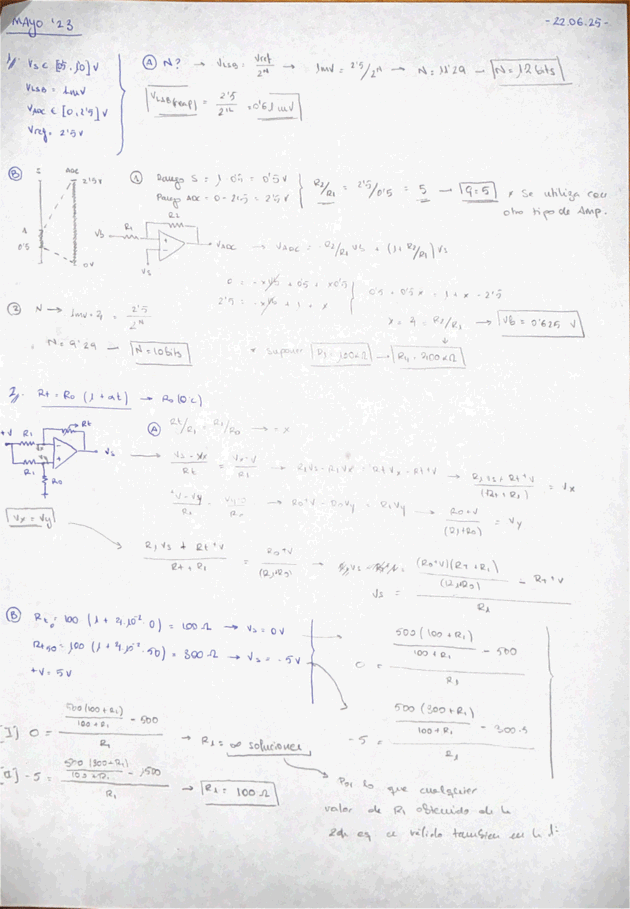 MAYO '23
- 22.06.25 -
1/ Vs ∈ [0'5, 1,0] V
VLSB = 1mV
VADC ∈ [0, 2'5] V
Vref = 2'5 V
A N? → VLSB = Vref/2^N → 1mV = 2'5/2^N → N = 11'29 → N = 12 bits
VLSB(real) = 2'5/2^12 = 0'61 mV
B
S ADC
2'5V
1
0'5
0V
1 Rango S = 1 - 0'5 = 0'5 V
Rango ADC = 0 - 2'5 = 2'5 V
R2/R1 = 2'5/0'5 = 5 → G = 5
* Se utiliza con
otro tipo de Amp.
R2
Vb R1 VADC
Vs
→ VADC = -R2/R1 Vb + (1 + R2/R1) Vs
0 = -xVb + 0'5 + x0'5
2'5 = -xVb + 1 + x
0'5 + 0'5x = 1 + x - 2'5
x = 4 = R2/R1 → Vb = 0'625 V
2 N → 1mV · 4 = 2'5/2^N
N = 9'29 → N = 10 bits
* suponer R1 = 100Ω → R2 = 400Ω
2/ Rt = R0 (1 + αt) → R0 (0°C)
Rt
+V R1
Vs
R1
R0
Vx = Vy
A Rt/R1 = R1/R0 → -x
Vs - Vx / Rt = Vx - V / R1 → R1Vs - R1Vx = RtVx - Rt+V → R1Vs + Rt+V / (Rt + R1) = Vx
+V - Vy / R1 = Vy / R0 → R0+V - R0Vy = R1Vy → R0+V / (R1+R0) = Vy
R1Vs + Rt+V / Rt + R1 = R0+V / (R1+R0) → Vs = (R0+V)(Rt + R1) / (R1+R0) - Rt+V / R1
B Rt0 = 100 (1 + 4·10^-2 · 0) = 100 Ω → Vs = 0V
Rt50 = 100 (1 + 4·10^-2 · 50) = 300 Ω → Vs = -5V
+V = 5V
0 = 500 (100 + R1) / 100 + R1 - 500 / R1
-5 = 500 (300 + R1) / 100 + R1 - 300·5 / R1
[I] 0 = 500 (100 + R1) / 100 + R1 - 500 / R1 → R1 = ∞ soluciones
[II] -5 = 500 (300 + R1) / 100 + R1 - 1500 / R1 → R1 = 100 Ω
Por lo que cualquier
valor de R1 obtenido de la
2da eq es válido también en la 1ª